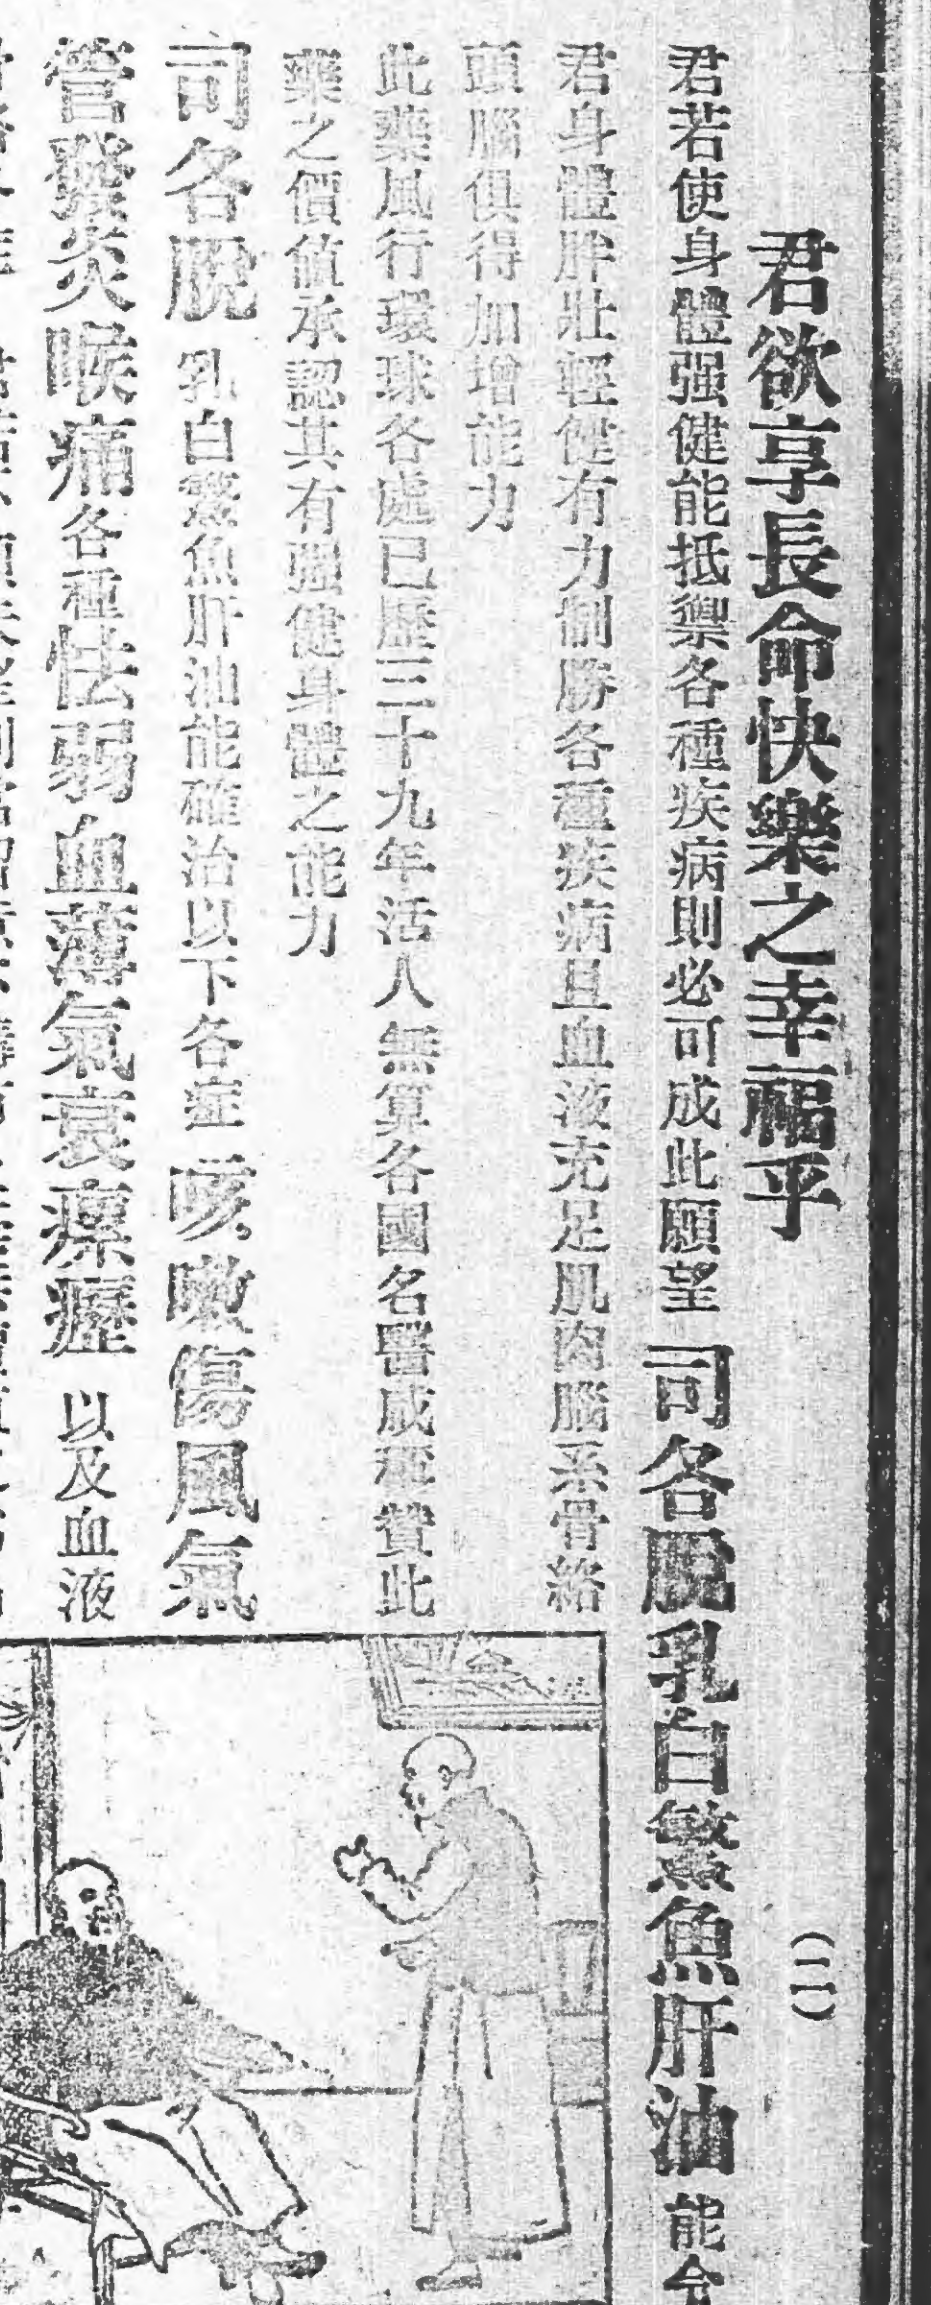 君欲享長命快樂之幸福乎
(二)
君若使身體强健能抵禦各種疾病則必可成此願望司各脫乳白鰵魚肝油能令
君身體胖壯輕健有力制勝各種疾病且血液充足肌肉腦系骨絡
頭腦俱得加增能力
此藥風行環球各處已歷三十九年活人無算各國名醫咸稱贊此
藥之價值承認其有强健身體之能力
司各脫乳白鰵魚肝油能確治以下各症咳嗽傷風氣
管發炎喉痛各種怯弱血薄氣衰瘰癧以及血液